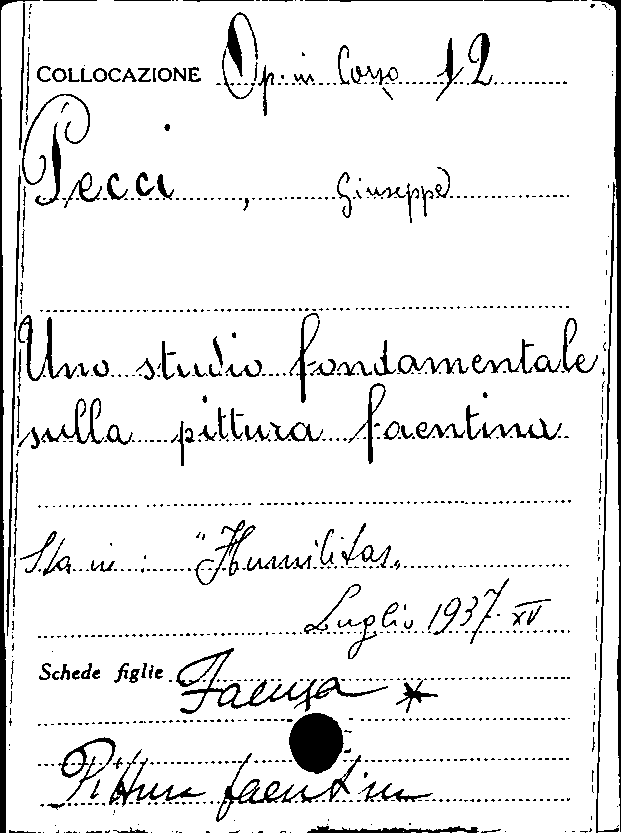 COLLOCAZIONE Op. in Corso 12
Pecci, Giuseppe
Uno studio fondamentale
sulla pittura faentina
Sta in: "Humilitas„
Luglio 1937. XV
Schede figlie Faenza *
Pittura faentina